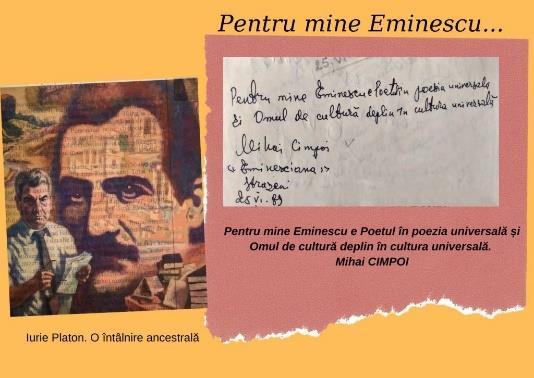 Pentru mine Eminescu...
25.VI
Pentru mine Eminescu e Poetul în poezia universală
și Omul de cultură deplin în cultura universală
Mihai Cimpoi
"Eminesciana"
Strașeni
25.VI.89
Pentru mine Eminescu e Poetul în poezia universală și
Omul de cultură deplin în cultura universală.
Mihai CIMPOI
Iurie Platon. O întâlnire ancestrală